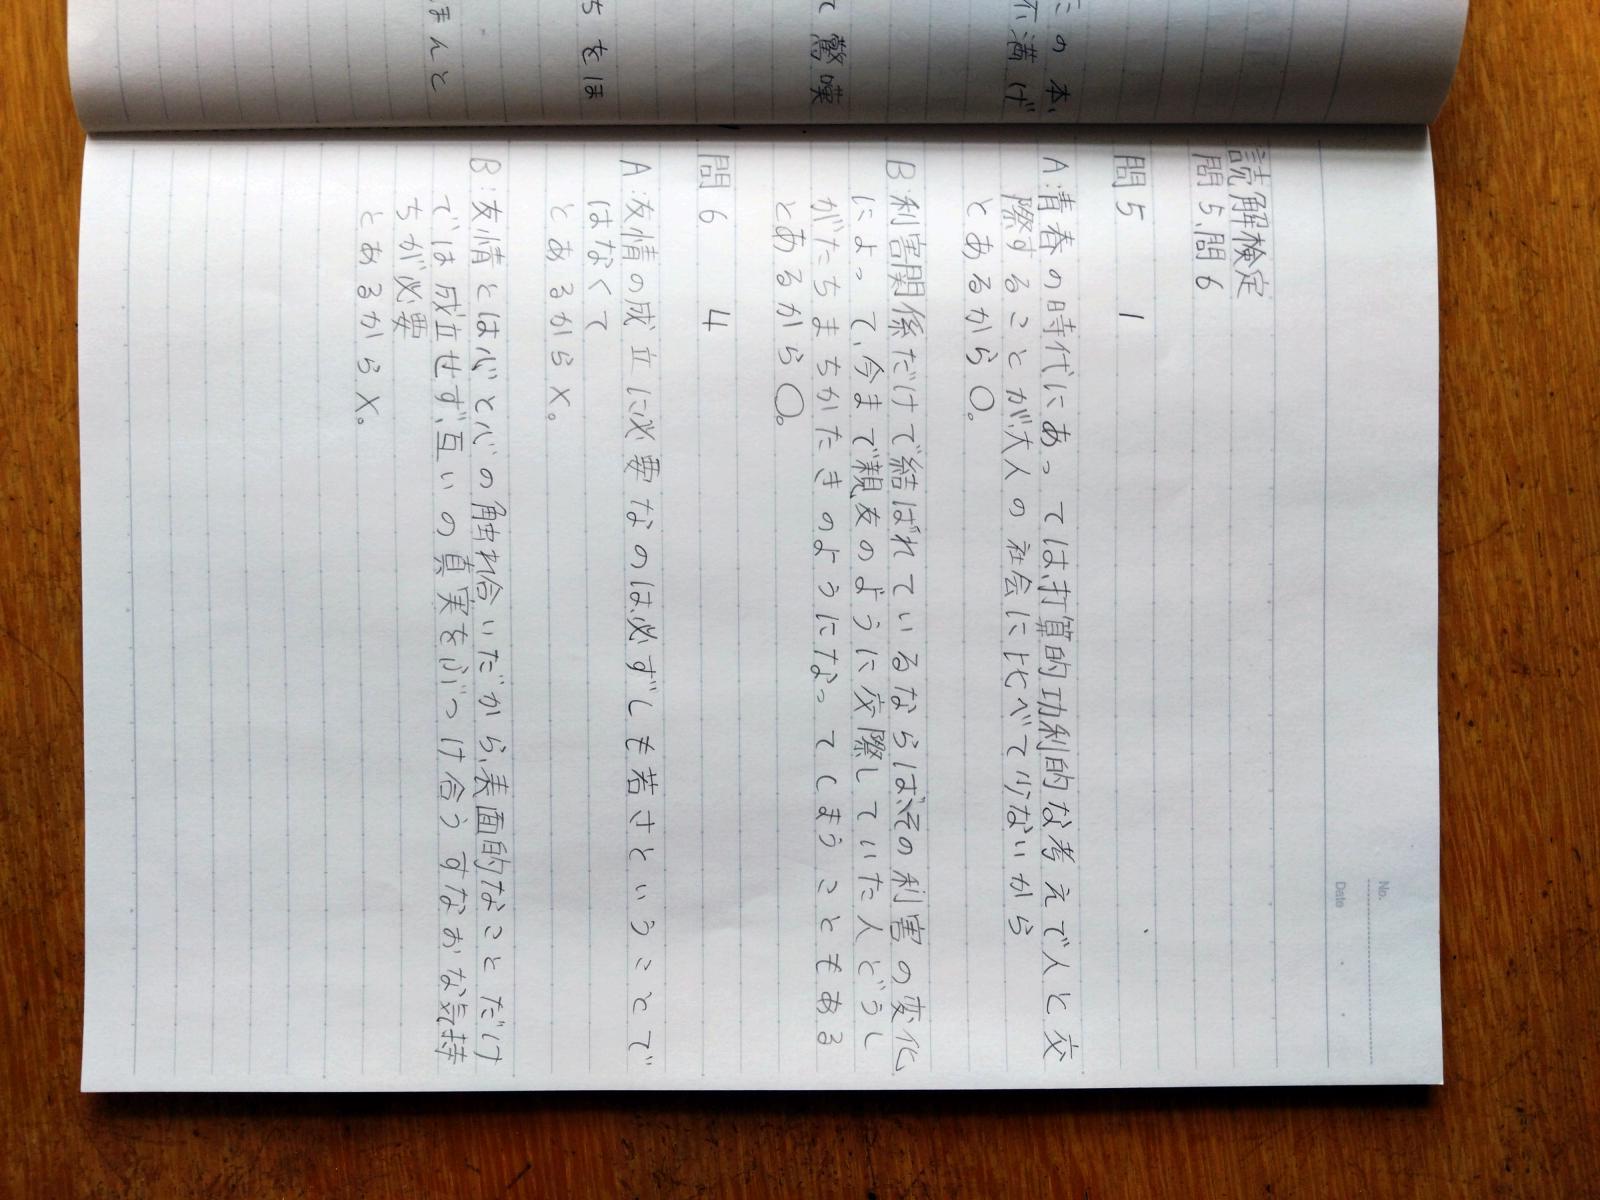 この本、
不満げ
て驚嘆
ちをほ
ほんと
No.
Date
読解検定
問5、問6
問5 1
A:青春の時代にあっては、打算的功利的な考えで人と交
際することが大人の社会に比べて少ないから
とあるから○。
B:利害関係だけで結ばれているならば、その利害の変化
によって、今まで親友のように交際していた人どうし
がたちまちかたきのようになってしまうこともある
とあるから○。
問6 4
A:友情の成立に必要なのは、必ずしも若さということで
はなくて
とあるから×。
B:友情とは心と心の触れ合いだから、表面的なことだけ
では成立せず、互いの真実をぶつけ合うすなおな気持
ちが必要
とあるから×。